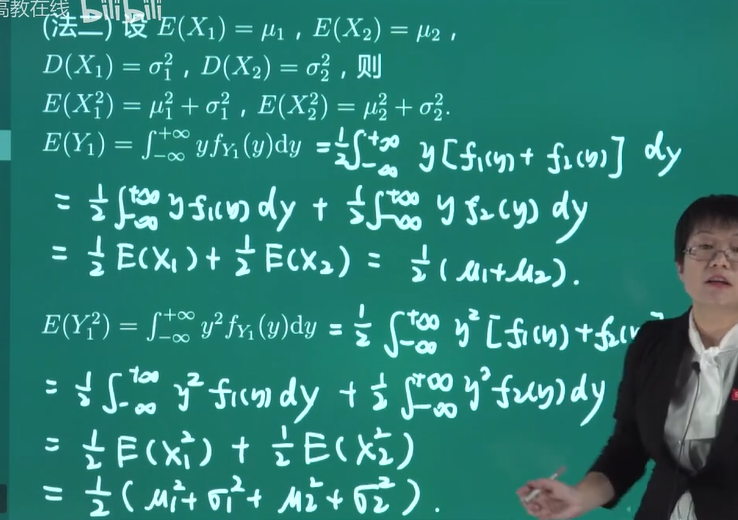 高教在线 bilibili
(法二) 设 E(X₁) = μ₁ , E(X₂) = μ₂ ,
D(X₁) = σ₁² , D(X₂) = σ₂² , 则
E(X₁²) = μ₁² + σ₁² , E(X₂²) = μ₂² + σ₂².
E(Y₁) = ∫₋∞⁺∞ y f_{Y₁}(y)dy = ½∫₋∞⁺∞ y [f₁(y) + f₂(y)] dy
= ½∫₋∞⁺∞ y f₁(y) dy + ½∫₋∞⁺∞ y f₂(y) dy
= ½ E(X₁) + ½ E(X₂) = ½ (μ₁+μ₂).
E(Y₁²) = ∫₋∞⁺∞ y² f_{Y₁}(y)dy = ½ ∫₋∞⁺∞ y² [f₁(y) + f₂(y)
= ½ ∫₋∞⁺∞ y² f₁(y) dy + ½ ∫₋∞⁺∞ y² f₂(y) dy
= ½ E(X₁²) + ½ E(X₂²)
= ½ (μ₁²+σ₁²+μ₂²+σ₂²).